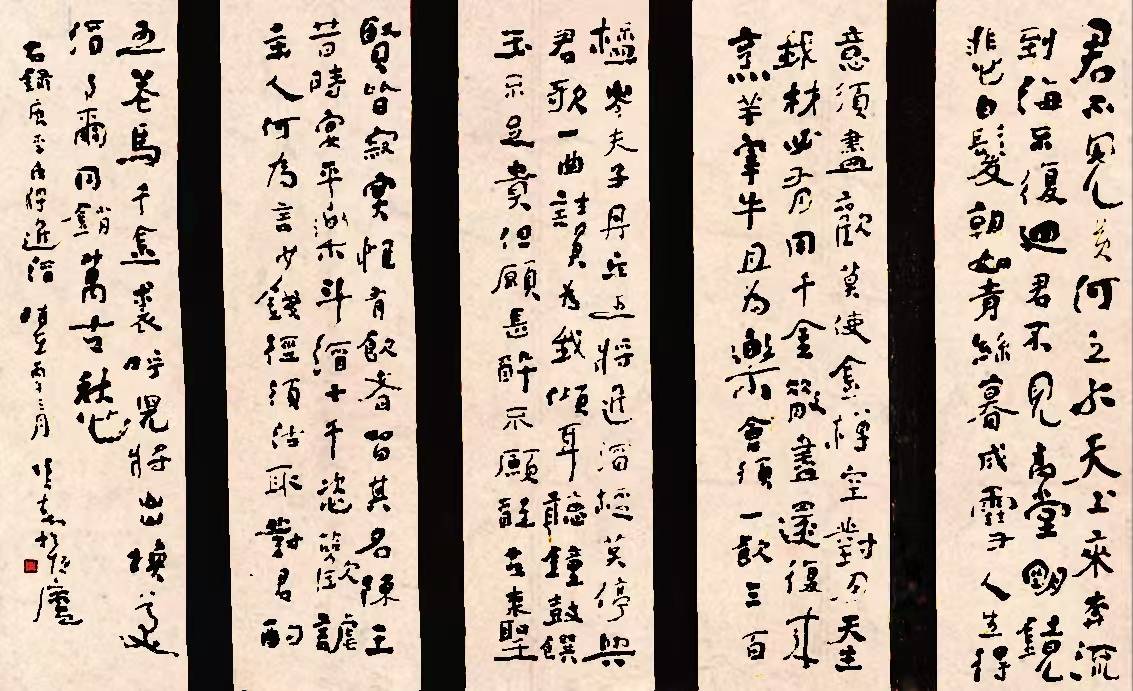 君不見黃河之水天上來奔流
到海不復迴君不見高堂明鏡
悲白髮朝如青絲暮成雪人生得
意須盡歡莫使金樽空對月天生
我材必有用千金散盡還復來
烹羊宰牛且為樂會須一飲三百
桮岑夫子丹丘生將進酒桮莫停與
君歌一曲請君為我傾耳聽鐘鼓饌
玉不足貴但願長醉不願醒古來聖
賢皆寂寞惟有飲者留其名陳王
昔時宴平樂斗酒十千恣歡謔
主人何為言少錢徑須沽取對君酌
五花馬千金裘呼兒將出換美
酒與爾同銷萬古愁
右錄唐李白將進酒 時在丙午三月